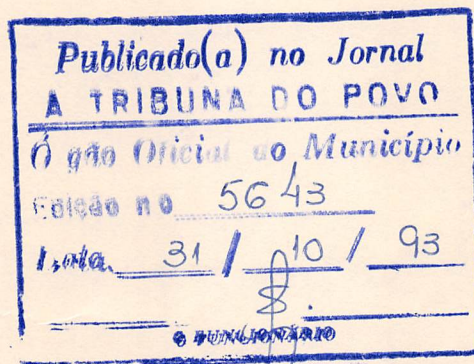 Publicado(a) no Jornal
A TRIBUNA DO POVO
Órgão Oficial do Município
Edição nº 5643
Data. 31 / 10 / 93
O FUNCIONÁRIO